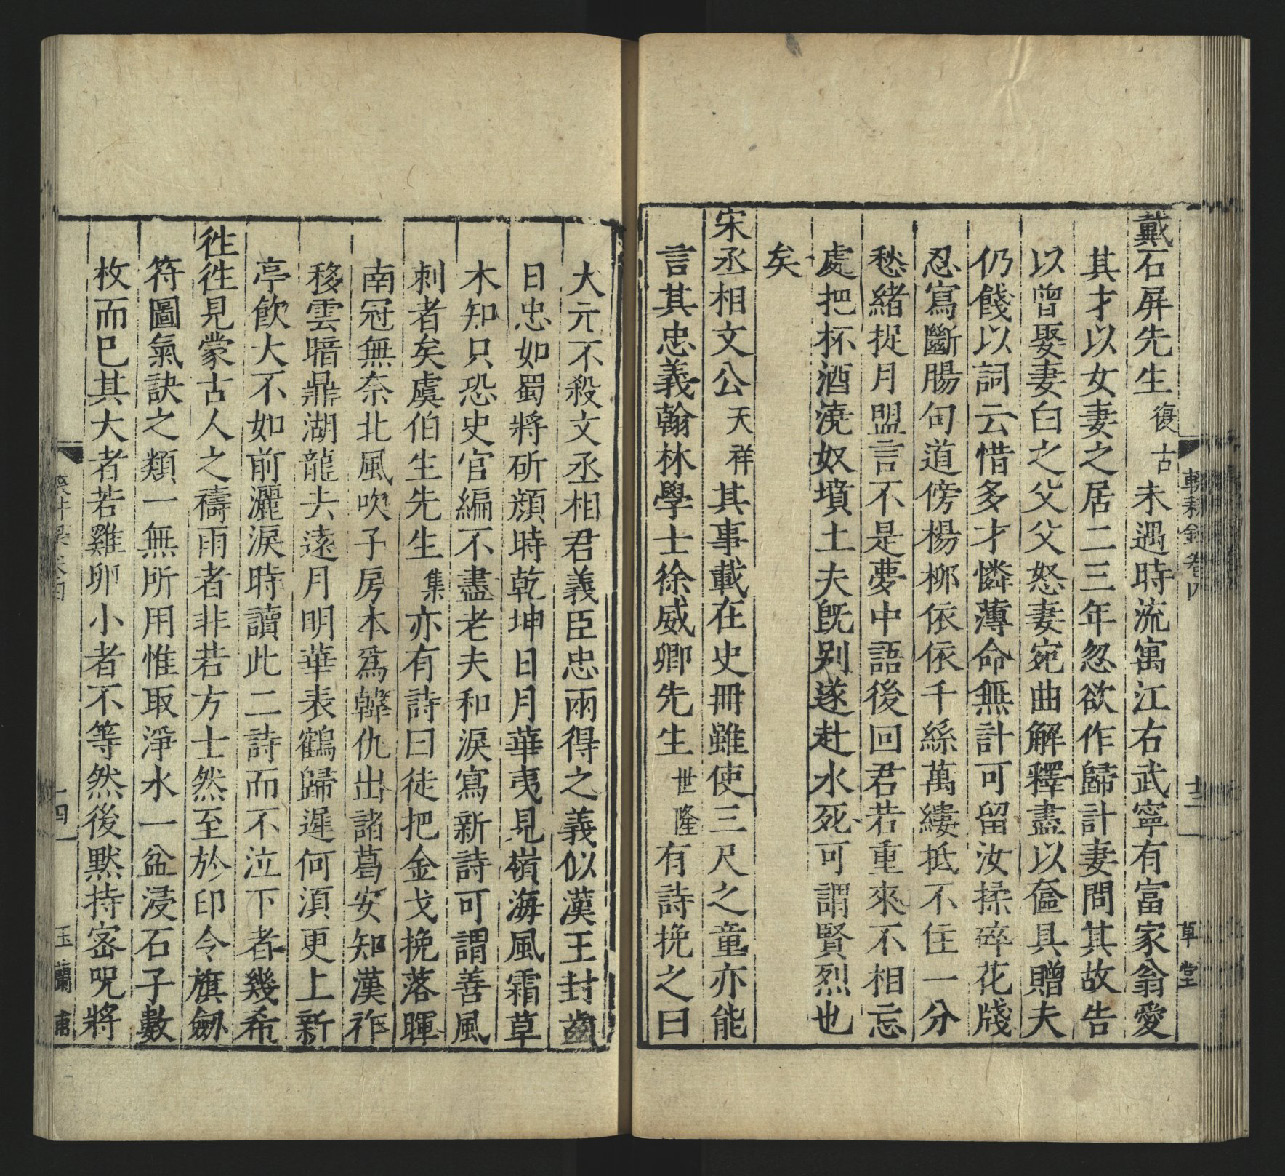 輟耕錄卷四
十三
草堂
戴石屏先生復古未遇時流寓江右武寧有富家翁愛
其才以女妻之居二三年忽欲作歸計妻問其故告
以曾娶妻白之父父怒妻宛曲解釋盡以奩具贈夫
仍餞以詞云惜多才憐薄命無計可留汝揉碎花牋
忍寫斷腸句道傍楊柳依依千絲萬縷抵不住一分
愁緒捉月盟言不是夢中語後回君若重來不相忘
處把杯酒澆奴墳土夫既別遂赴水死可謂賢烈也
矣
宋丞相文公天祥其事載在史冊雖使三尺之童亦能
言其忠義翰林學士徐威卿先生世隆有詩挽之曰
大元不殺文丞相君義臣忠兩得之義似漢王封齒
日忠如蜀將斫顏時乾坤日月華夷見嶺海風霜草
木知只恐史官編不盡老夫和淚寫新詩可謂善風
刺者矣虞伯生先生集亦有詩曰徒把金戈挽落暉
南冠無奈北風吹子房本爲韓仇出諸葛安知漢祚
移雲暗鼎湖龍去遠月明華表鶴歸遲何須更上新
亭飲大不如前灑淚時讀此二詩而不泣下者幾希
徃徃見蒙古人之禱雨者非若方士然至於印令旗劒
符圖氣訣之類一無所用惟取淨水一盆浸石子數
枚而已其大者若雞卵小者不等然後默持密咒將
十四
玉蘭